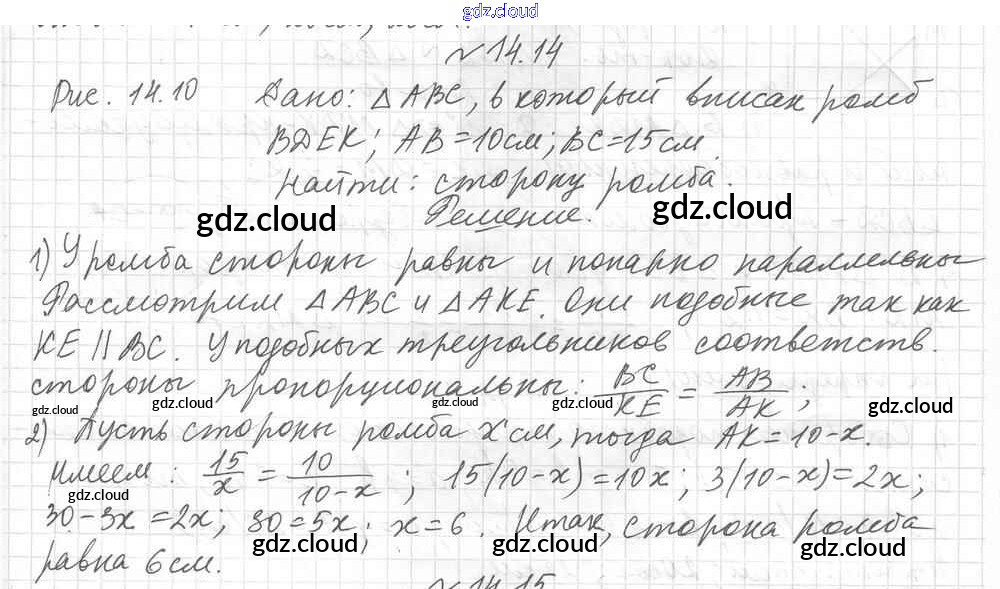 gdz.cloud
№14.14
Рис. 14.10 Дано: △ABC, в который вписан ромб
BDEK; AB=10см; BC=15см.
Найти: сторону ромба.
gdz.cloud Решение. gdz.cloud
1) У ромба стороны равны и попарно параллельны
Рассмотрим △ABC и △AKE. Они подобные так как
KE || BC. У подобных треугольников соответств.
стороны пропорциональны: BC/KE = AB/AK;
gdz.cloud gdz.cloud gdz.cloud gdz.cloud gdz.cloud
2) Пусть стороны ромба x см, тогда AK=10-x.
Имеем: 15/x = 10/(10-x); 15(10-x)=10x; 3(10-x)=2x;
gdz.cloud
30-3x=2x; 30=5x; x=6. Итак, сторона ромба
gdz.cloud gdz.cloud gdz.cloud
равна 6см.
№14.15